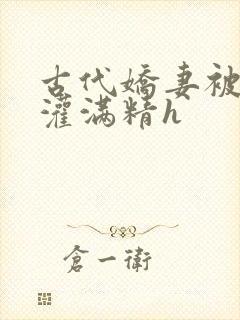 古代嬌妻被
灌滿精h
倉一衛